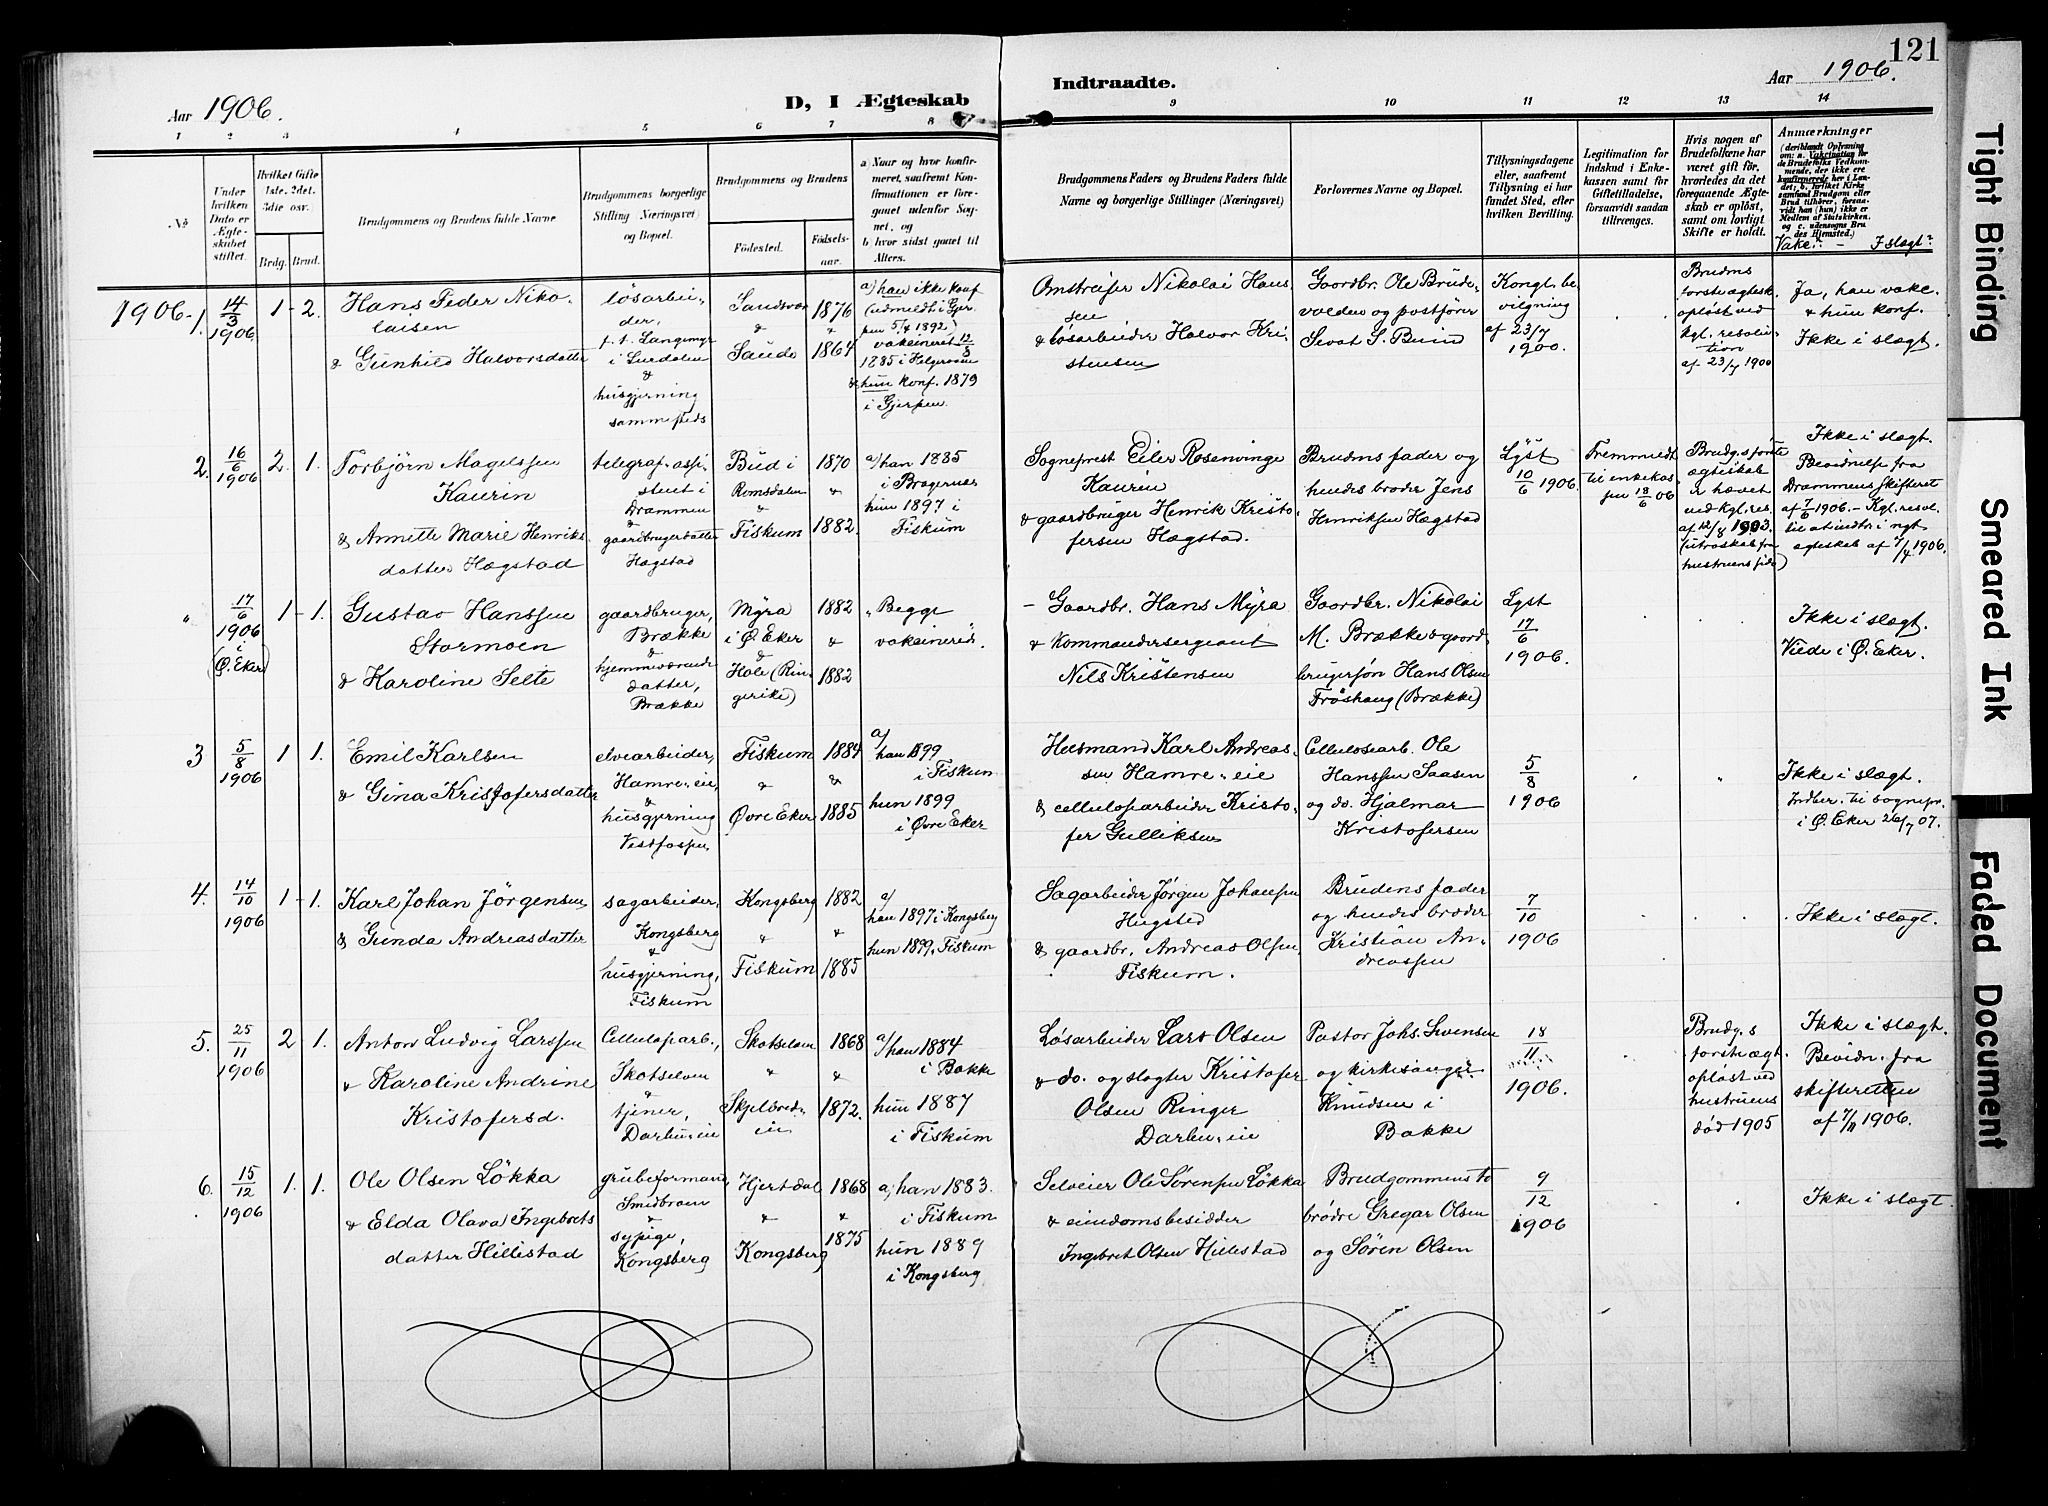 121
Aar 1906.
D, I Ægteskab
Indtraadte.
Aar 1906.
1 2 3 4 5 6 7 8
9 10 11 12 13 14
No
Under hvilken Dato er Ægteskabet stiftet.
Hvilket Gifte 1ste. 2det. 3die osv.
Brdg. Brud.
Brudgommens og Brudens fulde Navne
Brudgommens borgerlige Stilling (Næringsvei) og Bopæl.
Brudgommens og Brudens
Födested.
Födselsaar.
a) Naar og hvor konfirmeret, saafremt Konfirmationen er foregaaet udenfor Sognet, og
b) hvor sidst gaaet til Alters.
Brudgommens Faders og Brudens Faders fulde Navne og borgerlige Stillinger (Næringsvei)
Forlovernes Navne og Bopæl.
Tillysningsdagene eller, saafremt Tillysning ei har fundet Sted, efter hvilken Bevilling.
Legitimation for Indskud i Enkekassen samt for Giftetilladelse, forsaavidt saadan tiltrænges.
Hvis nogen af Brudefolkene har været gift før, hvorledes da det foregaaende Ægteskab er opløst, samt om lovligt Skifte er holdt.
Anmærkninger (deriblandt Oplysning om: a. Vakcination for de Brudefolks Vedkommende, der ikke ere konfirmerede her i Landet; b. hvilket Kirkesamfund Brudgom eller Brud tilhører, forsaavidt han (hun) ikke er Medlem af Statskirken og c. udensogns Brudes Hjemsted.)
Vakc. - I slægt?
1906 - 1.
14/3 1906
1 - 2.
Hans Peder Nikolaisen
& Gunhild Halvorsdatter
løsarbeider,
p.t. Langmyr
i Lurdalen
&
husgjerning
sammesteds
Sandsvær
&
Saude
1876
&
1864
a) han ikke konf
(udmeldt i Gjerpen 5/4 1892)
vakcineret 12/3
1885 i Helgeroa
& hun konf. 1879
i Gjerpen.
Omstreifer Nikolai Hanssen
& løsarbeider Halvor Kristensen
Gaardbr. Ole Brudevolden og postfører
Sevat S. Buin
Kongl. bevilgning
af 23/7
1900.
Brudens
første ægtesk.
opløst ved
kgl. resolution
af 23/7 1900
Ja, han vakc.
& hun konf.
Ikke i slægt.
2.
16/6 1906
2. 1.
Torbjörn Magelssen
Kaurin
& Annette Marie Henriksdatter Hægstad
telegrafassistent i
Drammen
&
gaardbrugerdatter
Hægstad
Bud i
Romsdalen
&
Fiskum
1870
&
1882.
a) han 1885
i Bragernes
hun 1897 i
Fiskum
Sogneprest Eiler Rosenvinge
Kaurin
& gaardbruger Henrik Kristofersen Hægstad.
Brudens fader og
hendes broder Jens
Henriksen Hægstad
Lyst
10/6 1906.
Fremmedt
til enkekassen 18/6 06
Brudg.s første
ægteskab
er hævet
ved kgl. res.
af 12/8 1903.
(utroskab fra
hustruens side)
Ikke i slægt.
Bevidnelse fra
Drammens skifteret
af 7/6 1906. - Kgl. resol.
til at indtr. i nyt
ægteskab af 7/4 1906.
"
17/6 1906
i
(Ø. Eker)
1 - 1.
Gustav Hanssen
Stormoen
& Karoline Selte
gaardbruger,
Brække
&
hjemmeværende
datter,
Brække
Myra
i Ø. Eker
&
Hole (Ringerike)
1882
&
1882
" Begge
vakcinerede.
- Gaardbr. Hans Myra
& Kommandersergeant
Nils Kristensen
Gaardbr. Nikolai
M. Brække & gaardbrugersøn Hans Olsen
Frøshaug (Brække)
Lyst
17/6
1906.
Ikke i slægt.
Viede i Ø. Eker.
3
5/8 1906
1 1.
Emil Karlsen
& Gina Kristofersdatter
elvearbeider,
Hamre-eie,
&
husgjerning
Vestfossen
Fiskum
&
Øvre Eker
1884
&
1885
a)
han 1899
i Fiskum
hun 1899
i Øvre Eker
Husmand Karl Andreassen Hamre-eie
& cellulosearbeider Kristofer Gulliksen
Cellulosearb. Ole
Hanssen Saasen
og do. Hjalmar
Kristofersen
5/8
1906
Ikke i slægt.
Indber. til sognepr.
i Ø. Eker 26/7 07.
4.
14/10 1906
1 - 1.
Karl Johan Jörgensen
& Gunda Andreasdatter
sagarbeider,
Kongsberg
&
husgjerning,
Fiskum
Kongsberg
&
Fiskum
1882
&
1885
a)
han 1897 i Kongsberg
hun 1899 i Fiskum
Sagarbeider Jørgen Johansen
Hugsted
& gaardbr. Andreas Olsen
Fiskum.
Brudens fader
og hendes broder
Kristian Andreassen
7/10
1906
Ikke i slægt.
5.
25/11 1906
2 1.
Anton Ludvig Larssen
& Karoline Andrine
Kristofersd.
Cellulosearb.,
Skotselven
&
tjener,
Darbu-eie
Skotselven
&
Skjelbredeie
1868
&
1872.
a) han 1884
i Bakke
hun 1887
i Fiskum
Løsarbeider Lars Olsen
& do. og slagter Kristofer
Olsen Ringer
Darbu-eie
Pastor Johs. Svensen
og kirkesanger
Knudsen i
Bakke
18/11
1906.
Brudg.s
første ægt.
opløst ved
hustruens
død 1905
Ikke i slægt.
Bevidn. fra
skifteretten
af 7/11 1906.
6.
15/12 1906
1. 1.
Ole Olsen Løkka
& Elda Olava Ingebretsdatter Hillestad
grubeformand
Smidbroen
&
sypige,
Kongsberg
Hjertdal
&
Kongsberg
1868
&
1875
a) han 1883.
i Fiskum
hun 1889
i Kongsberg
Selveier Ole Sørensen Løkka
& eiendomsbesidder
Ingebret Olsen Hillestad
Brudgommens to
brødre Gregar Olsen
og Søren Olsen
9/12
1906
Ikke i slægt.
Tight Binding
Smeared Ink
Faded Document